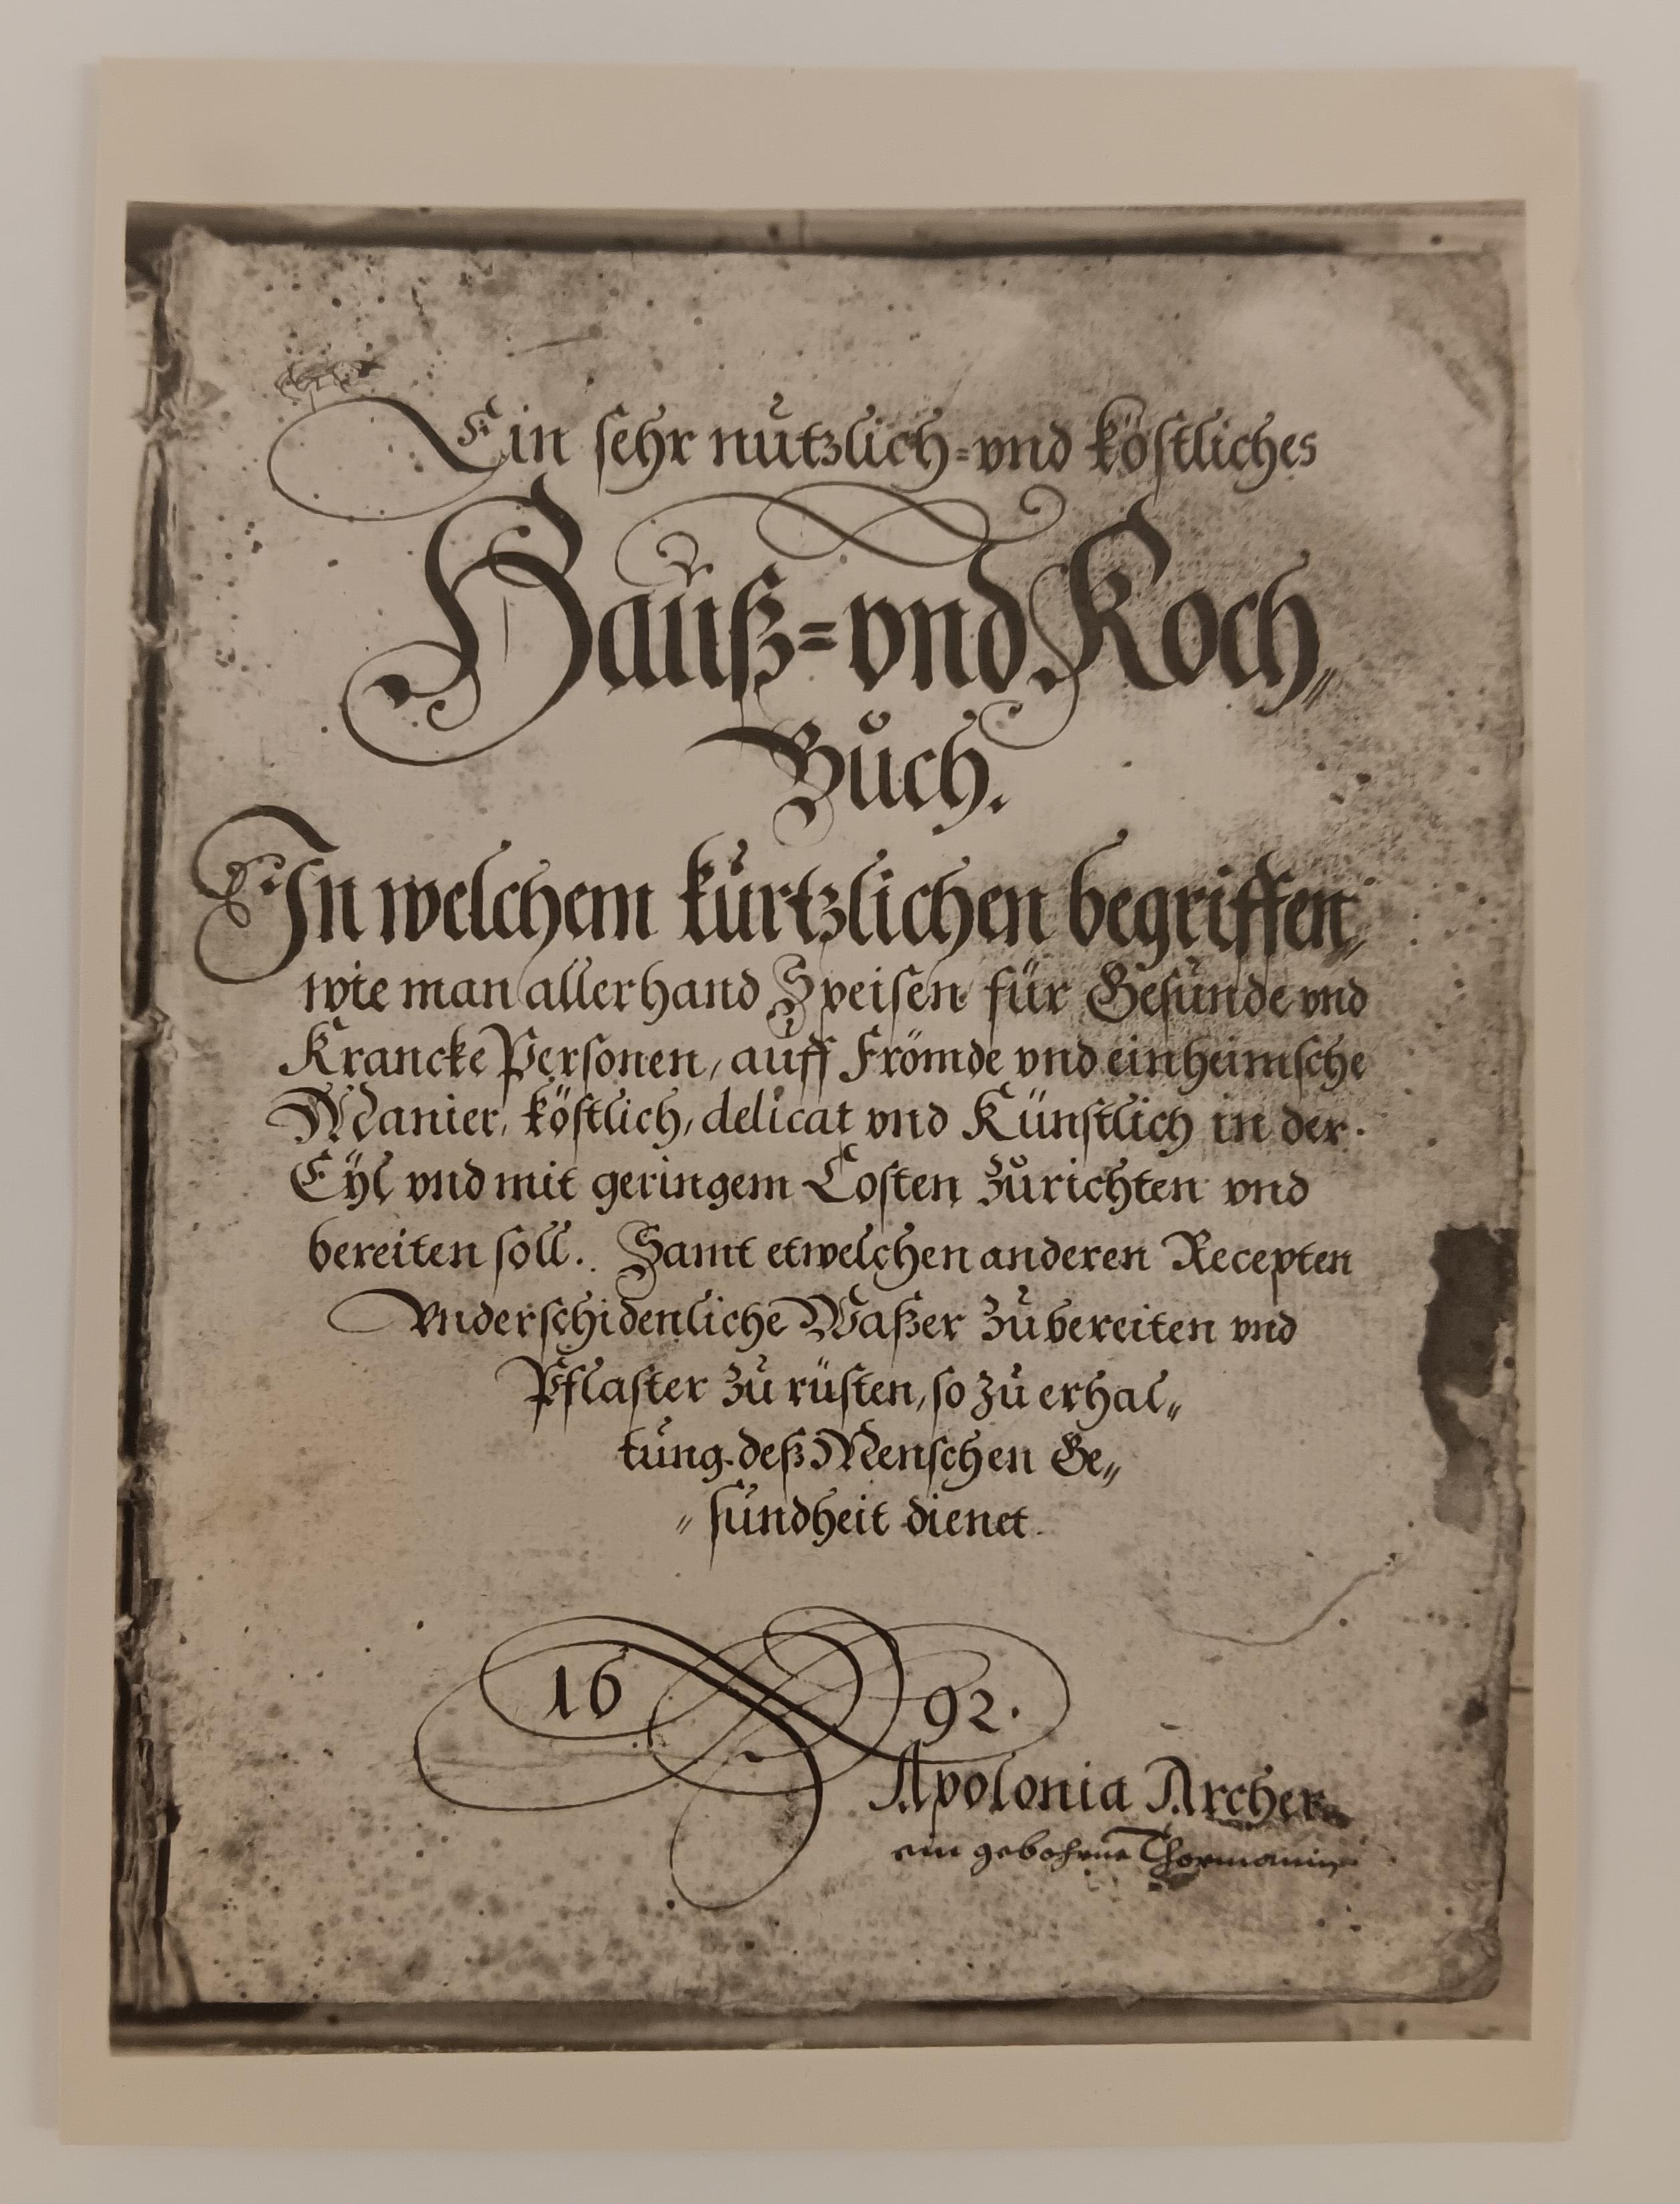 Ein sehr nutzlich=vnd köstliches
Hauß=vnd Koch„
Buch.
In welchem kurtzlichen begriffen„
wie man allerhand Speisen für Gesunde vnd
Krancke Personen, auff Frömde vnd einheimsche
Manier, köstlich, delicat vnd Künstlich in der
Eÿl vnd mit geringem Costen zurichten vnd
bereiten soll. Samt etwelchen anderen Recepten
vnderschidenliche Waßer zubereiten vnd
Pflaster zu rüsten, so zu erhal„
tung deß Menschen Ge„
„sundheit dienet.
16 92.
Apolonia Archer
ein gebohrne Thormannin